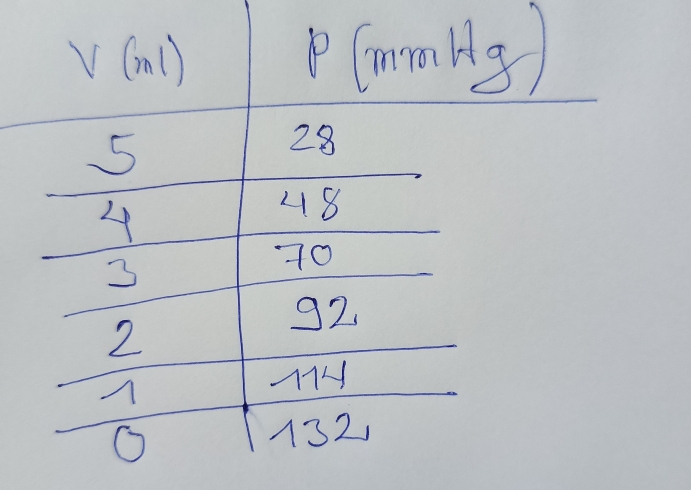 V (ml) P (mmHg)
5 28
4 48
3 70
2 92
1 114
0 132